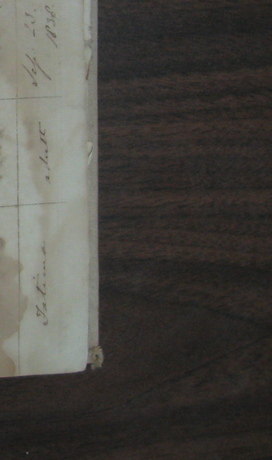 Fatima adult Sep. 23.
1838.